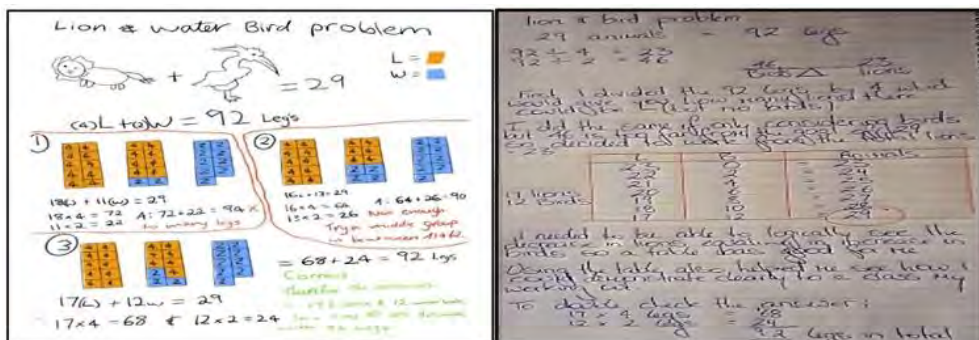 Lion & Water Bird problem
L =
W =
+ = 29
(4)L + (2)W = 92 Legs
1)
18(L) + 11(W) = 29
18 x 4 = 72
11 x 2 = 22
A: 72 + 22 = 94 x
to many legs
2
16L + 13 = 29
16 x 4 = 64
13 x 2 = 26
A: 64 + 26 = 90
Not enough
Try a middle group
in between
3
17(L) + 12W = 29
17 x 4 = 68 & 12 x 2 = 24
= 68 + 24 = 92 Legs
Correct
Lion & bird problem
29 animals = 92 legs
92 ÷ 4 = 23
92 ÷ 2 = 46
46 23
Birds lions
First I divided the 92 legs by 4 which
would give you how many lions there
could be (but no birds)
I did the same if only considering birds
but 46 is too far from the goal of 29
so decided to work from the
= 23
L B Animals
23 0 = 23
22 2 = 24
21 4 = 25
20 6 = 26
19 8 = 27
18 10 = 28
17 12 = 29
17 lions
12 Birds
I needed to be able to logically see the
decrease in lions equating in increase in
birds so a table was good for me
Using the table also helped me see how I
could demonstrate clearly to a class my
working out
To double check the answer:
17 x 4 legs = 68
12 x 2 legs = 24
92 legs in total